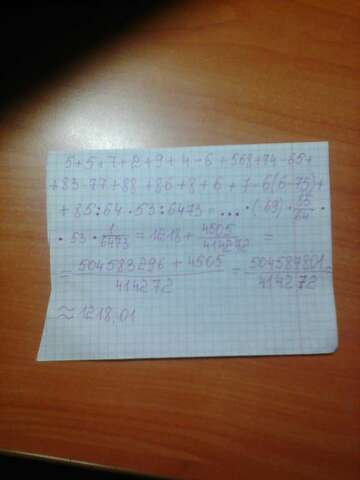 5+5+7+2+9+4-6+568+94-65+
+83-77+88+86+8+6+7-6(6-75)+
+85:64·53:6473=...·(-69)·85/64·
·53·1/6473=1218+4505/414272=
=504583296+4505/414272=504587801/414272=
≈1218,01